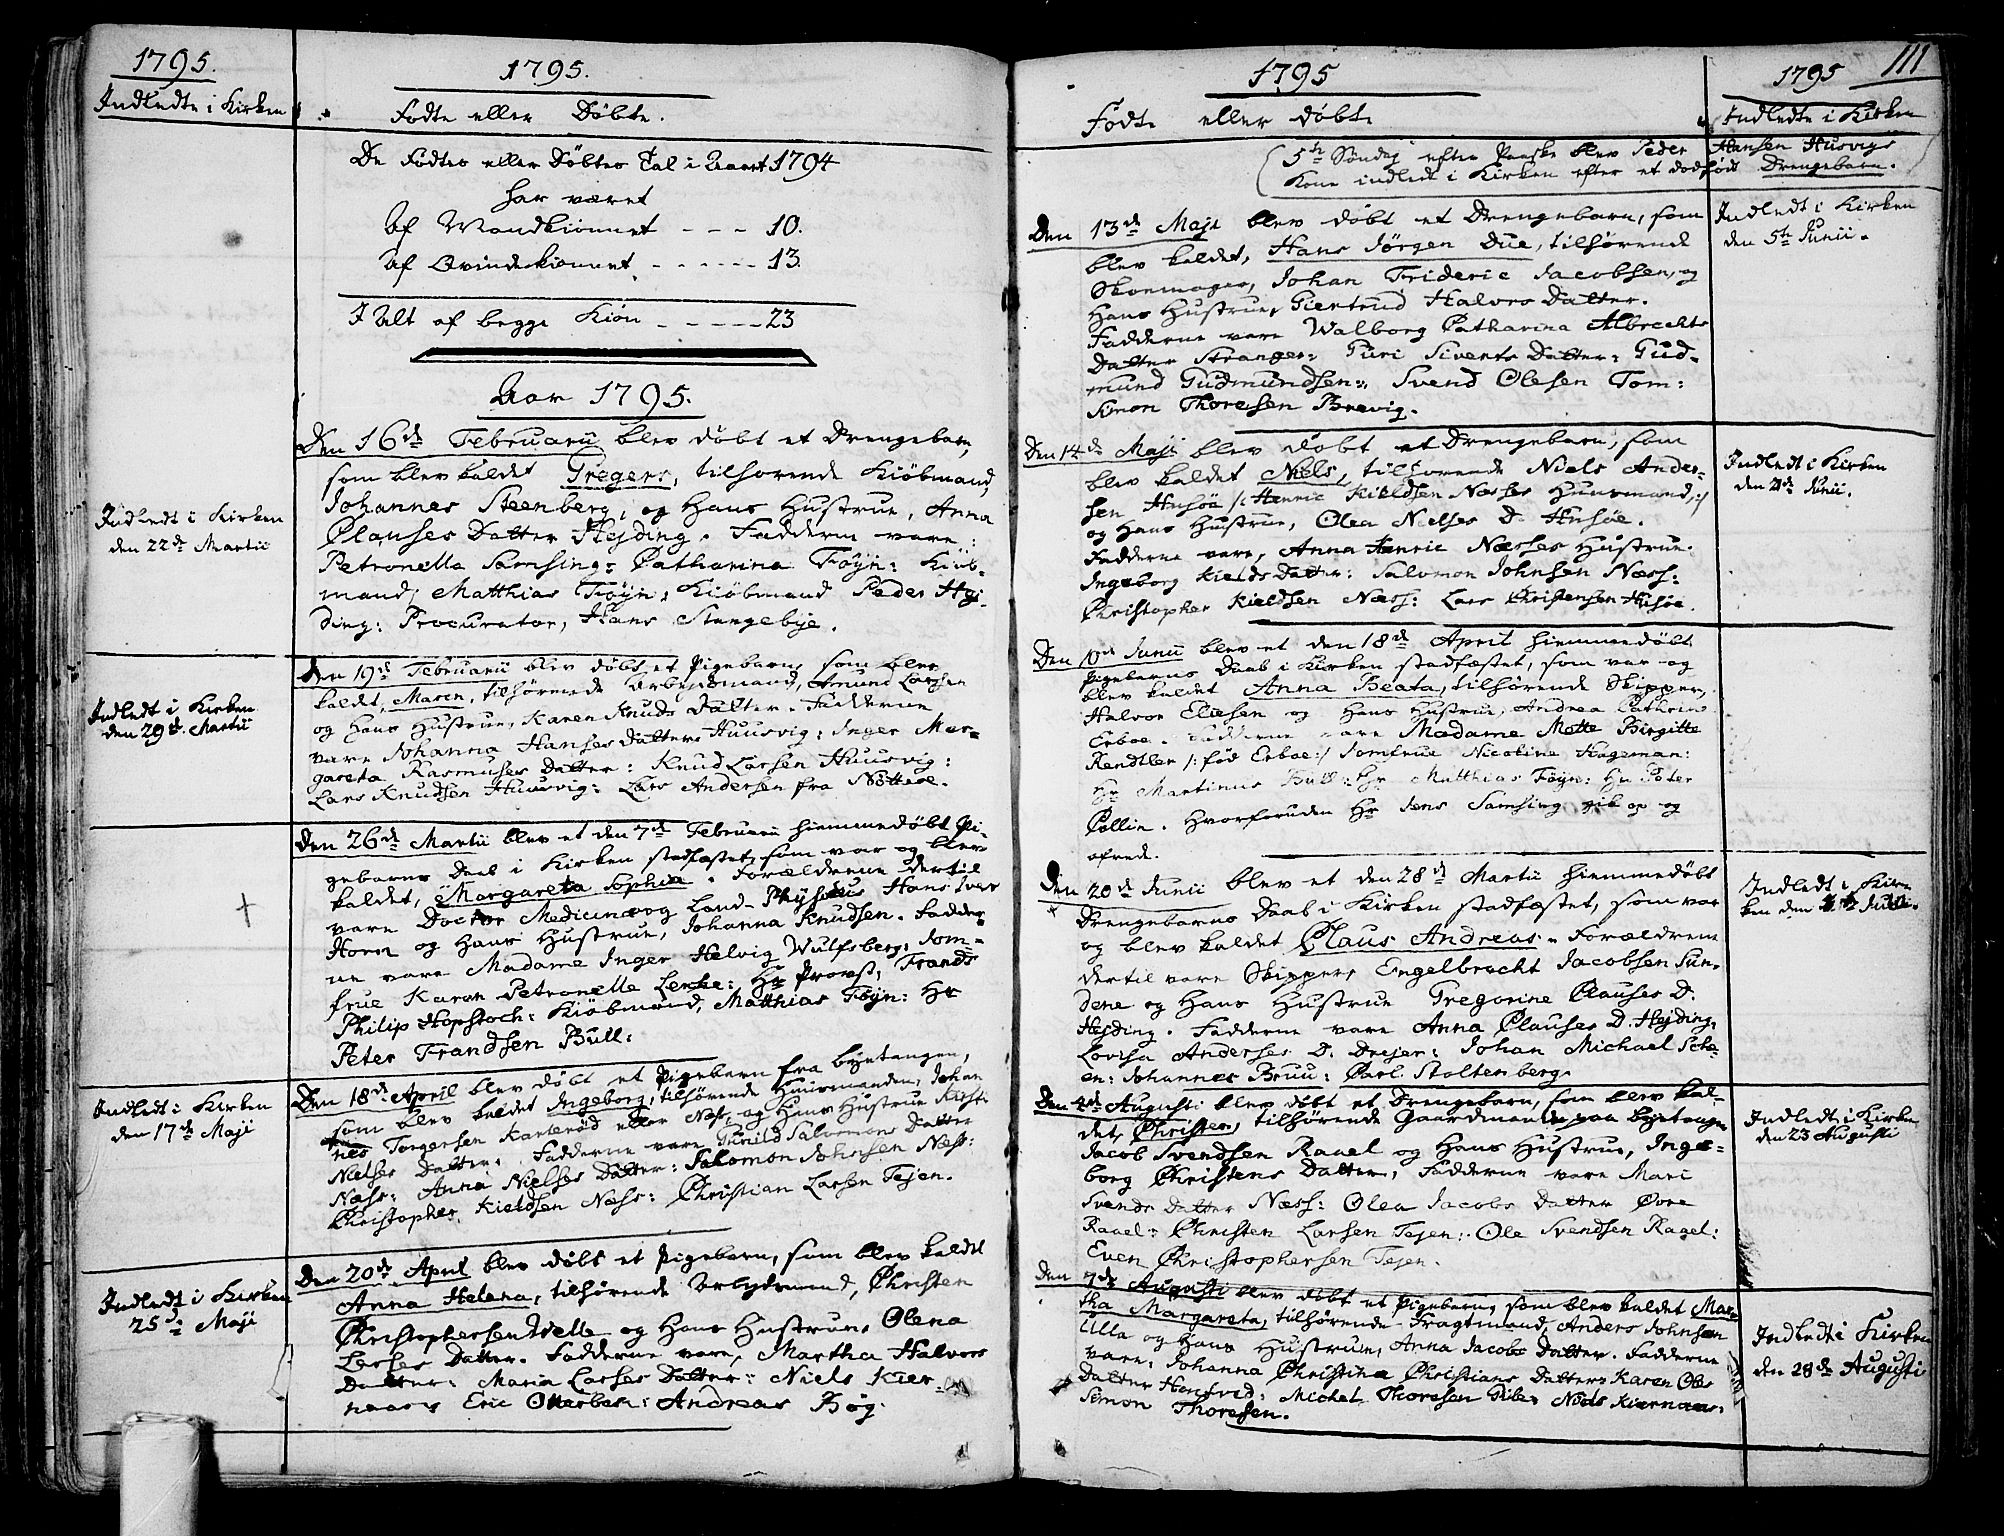 1795.
Indledte i Kirken
1795.
Fødte eller Døbte.
De Fødtes eller Døbtes Tal i Aaret 1794
har været
Af Mandkiønnet - - - 10.
Af Qvindekiønnet - - - - - - 13.
I Alt af begge Kiøn - - - - - 23
Aar 1795.
Den 16de Februarii blev døbt et Drengebarn,
som blev kaldet Gregers, tilhørende Kiøbmand,
Johannes Steenberg, og Hans Hustrue, Anna
Clauses Datter Hejding. Fadderne vare:
Petronella Samsing: Catharina Føyn: Kiøb-
mand, Matthias Føyn: Kiøbmand Peder Hej-
ding: Procurator, Hans Stangebye.
Indledt i Kirken
den 22de Martii
Den 19de Februarii blev døbt et Pigebarn, som blev
kaldet, Maren, tilhørende Arbejdsmand, Amund Larsen
og Hans Hustrue, Karen Knuds Datter. Fadderne
vare Johanna Hanses Datter Huusvig: Inger Mar-
gareta Rasmuses Datter: Knud Larsen Huusvig:
Lars Knudsen Huusvig: Lars Andersen fra Nøtterøe.
Indledt i Kirken
den 29de Martii
Den 26de Martii blev et den 7de Februarii hiemmedøbt Pi-
gebarns Daab i Kirken stadfæstet, som var og blev
kaldet, Margareta Sophia. Forældrene dertil
vare Doctor Medicinæ og Land-Physicus Hans Iver
Horn og Hans Hustrue, Johanna Knudsen. Fadder-
ne vare Madame Inger Helvig Wulfsberg: Jom-
frue Karen Petronelle Lenke: Hr Provst, Frands
Philip Hopstock: Kiøbmand, Matthias Føyn: Hr
Peter Frandsen Bull:
Den 18de April blev døbt et Pigebarn fra byetangen,
som blev kaldet Ingeborg, tilhørende Huusmanden, Johan
nes Torgersen Karterød eller Næs, og Hans Hustrue Kirsti
Nielses Datter. Fadderne vare Gunild Salomons Datter
Næss: Anna Nielses Datter: Salomon Johnsen Næss:
Christopher Kieldsen Næss: Christian Larsen Tejen.
Indledt i Kirken
den 17de Maji
Den 20de April blev døbt et Pigebarn, som blev kaldet
Anna Helena, tilhørende Arbejdsmand, Christen
Christophersen Welle og Hans Hustrue, Olena
Larses Datter. Fadderne vare, Martha Halvors
Datter: Maria Larses Datter: Niels Kier-
naas: Eric Otterbek: Andreas Bøg.
Indledt i Kirken
25de Maji
1795
Fødte eller døbte
1795
111
Indledte i Kirken
5te Søndag efter Paaske blev Peder Hansen Husvigs
Kone indledt i Kirken efter et dødfødt Drengebarn.
Den 13de Maji blev døbt et Drengebarn, som
blev kaldet, Hans Jørgen Due, tilhørende
Skoemager, Johan Frideric Jacobsen, og
Hans Hustrue, Giertrud Halvors Datter.
Fadderne vare Walborg Catharina Albrechts
Datter Stranger: Guri Siverts Datter: Gud-
mund Gudmundsen: Svend Olesen Tom:
Simon Thoresen Brevig.
Indledt i Kirken
den 5te Junii.
Den 14de Maji blev døbt et Drengebarn, som
blev kaldet Niels, tilhørende Niels Ander-
sen Husøe /: Henric Kieldsen Næsses Huusmand,:/
og Hans Hustrue, Olea Nielses D. Husøe.
Fadderne vare, Anna Henric Næsses Hustrue.
Ingeborg Kields Datter: Salomon Johnsen Næss:
Christopher Kieldsen Næss: Lars Christensen Husøe.
Indledt i Kirken
den 21de Junii.
Den Junii blev et den 18de April hiemmedøbt
Pigebarns Daab i Kirken stadfæstet, som var og
blev kaldet Anna Beata, tilhørende Skipper,
Halvor Eliesen og Hans Hustrue, Andrea Cathrine
Erboe. Fadderne vare Madame Mette Birgitte
Rendtler /: fød Erboe:/ Jomfrue Nicoline Hageman:
Hr Martinus Bull: Hr Matthias Føyn: Hr Peter
Collin. Hvorforuden Hr Jens Samsing gik op og
ofrede.
Den 20de Junii blev et den 28de Martii hiemmedøbt
Drengebarns Daab i Kirken stadfæstet, som var
og blev kaldet Claus Andreas. Forældrene
dertil vare Skipper, Engelbrecht Jacobsen Sun-
dene og Hans Hustrue Gregorine Clauses D.
Hejding. Fadderne vare Anna Clauses D. Hejding:
Lovisa Anderses D. Drejer: Johan Michael Sche-
en: Johannes Bruu: Carl Stoltenberg.
Indledt i Kir-
ken den Julii.
Den 4de Augusti blev døbt et Drengebarn, som blev kal-
det, Christen, tilhørende Gaardmanden paa byetangen
Jacob Svendsen Ravel og Hans Hustrue, Inge-
borg Christens Datter, Fadderne vare Mari
Svends Datter Næss: Olea Jacobs Datter Øvre
Ravel: Christen Larsen Tejen: Ole Svendsen Ravel:
Even Christophersen Tejen.
Indledt i Kirken
den 23 Augusti
Den 7de Augusti blev døbt et Pigebarn, som blev kaldet Mar-
tha Margareta, tilhørende Fragtmand, Anders Johnsen
Ulla og Hans Hustrue, Anna Jacobs Datter. Fadderne
vare: Johanna Christina Christians Datter: Karen Oles
Datter Hougvid: Michel Thoresen Pibe: Niels Kiernaas:
Simon Thoresen.
Indledt i Kirken
den 28de Augusti